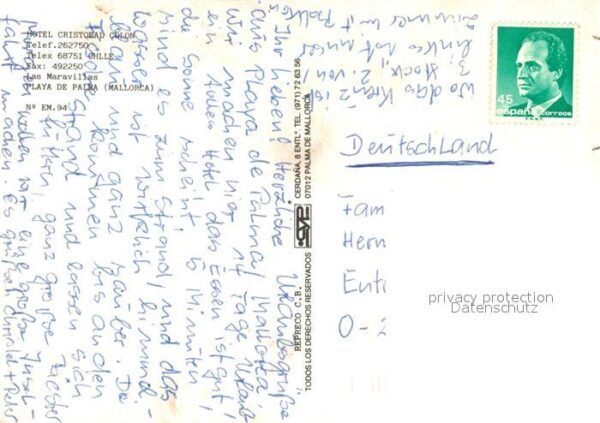 HOTEL CRISTOBAL COLON
Telef.262750
Telex 68751 CHLLE
Fax: 492250
Las Maravillas
PLAYA DE PALMA (MALLORCA)
Nº EM.94
Ihr Lieben! Herzliche Urlaubsgrüße
aus Playa de Palma / Mallorca
Wir machen hier 14 Tage Urlaub
Hotel das Essen ist gut,
die Sonne scheint
sind es zum Strand, und das
Wasser ist wirklich
und ganz sauber. Die
kommen bis an den
Strand und lassen sich
füttern, ganz große
wollen wir eine große Insel-
fahrt machen. Es grüßen
Wo das Kreuz ist
3. Stock, 2. von
links ist unser
Zimmer mit Balkon
REPRECO C.B.
CERDAÑA, 8 ENTLº TEL. (971) 72 63 56
07012 PALMA DE MALLORCA
TODOS LOS DERECHOS RESERVADOS
45
españa
correos
Deutschland
Fam
Herr
O-2
privacy protection
Datenschutz